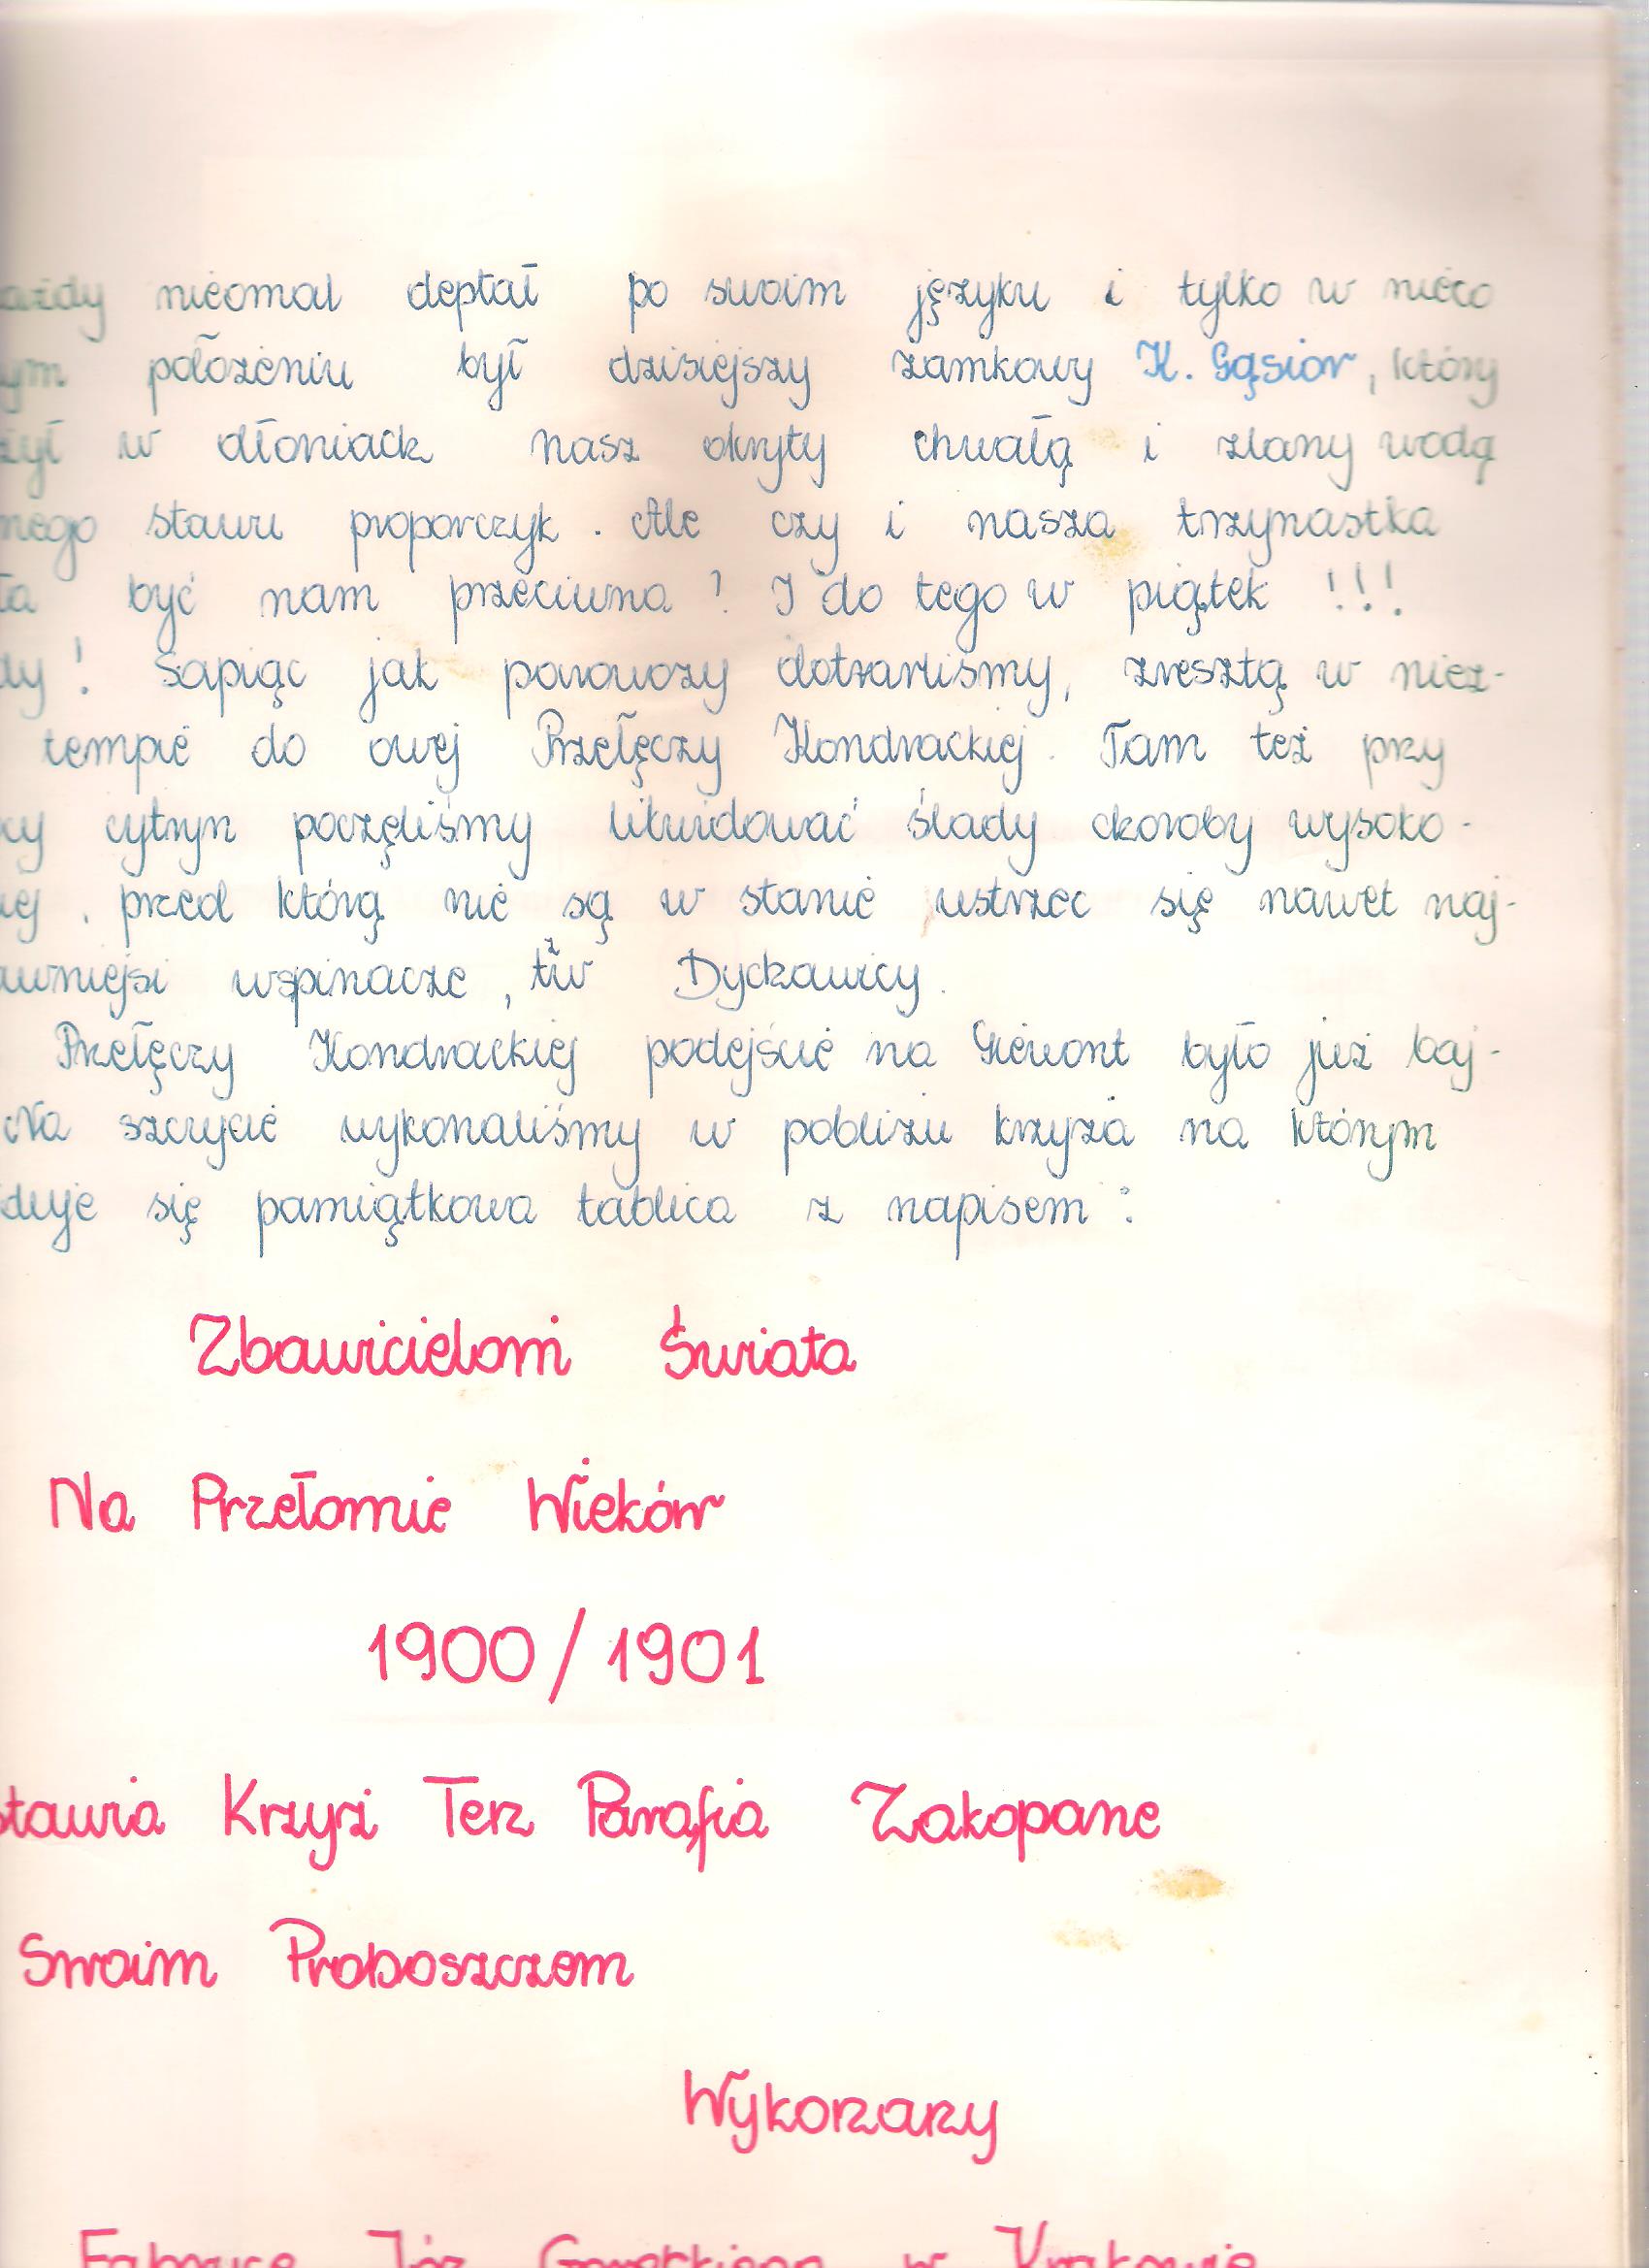 ażdy nieomal deptał po swoim języku i tylko w nieco
ym położeniu był dzisiejszy zamkowy K. Gąsior, który
żył w dłoniach nasz okryty chwałą i zlany wodą
nego stawu proporczyk. Ale czy i nasza trzynastka
ła być nam przeciwna? I do tego w piątek!!!
dy! Sapiąc jak parowozy dotarliśmy, zresztą w niez-
tempie do owej Przełęczy Kondrackiej. Tam też przy
cy cytryn poczęliśmy likwidować ślady choroby wysoko-
iej, przed którą nie są w stanie ustrzec się nawet naj-
awniejsi wspinacze, tzw Dychawicy.
Przełęczy Kondrackiej podejście na Giewont było już baj-
Na szczycie wykonaliśmy w pobliżu krzyża na którym
duje się pamiątkowa tablica z napisem:
Zbawicielowi Świata
Na Przełomie Wieków
1900/1901
stawia Krzyż Ten Parafia Zakopane
Swoim Proboszczem
Wykonany
Fabryce Józ Goreckiego w Krakowie